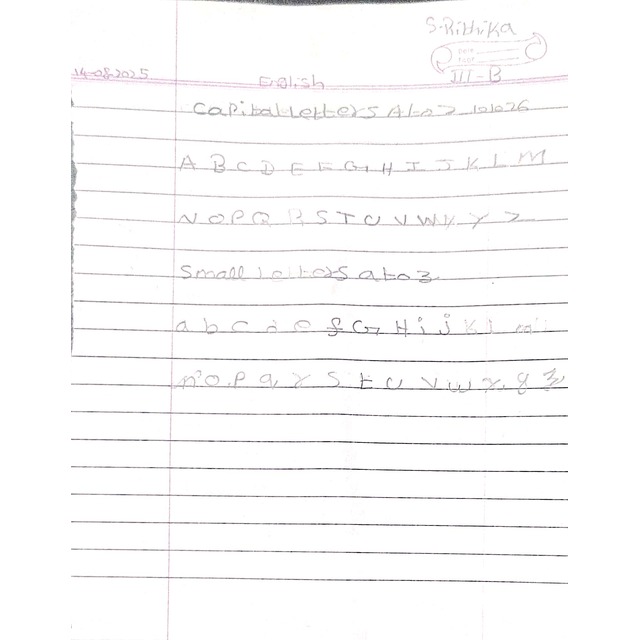 S.Rithika
Date
III-B
14-08-2025
English
Capital letters A to Z
A B C D E F G H I J K L M
N O P Q R S T U V W X Y Z
Small letters a to z
a b c d e f G H i j k l m
n o p q r s t u v w x y z